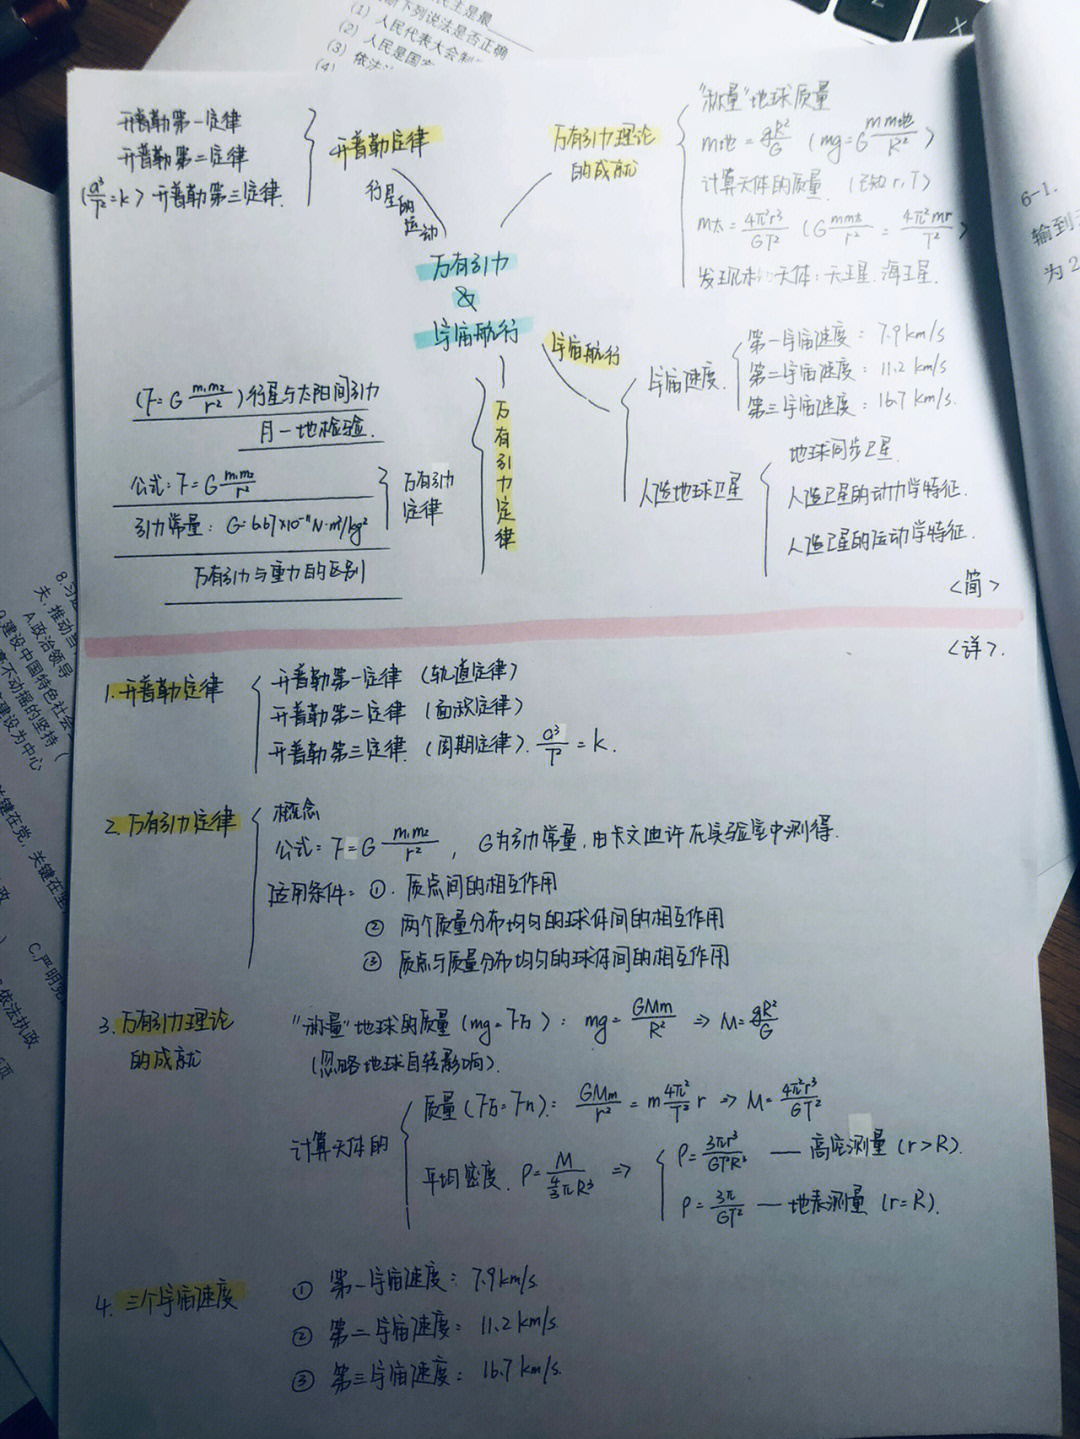 民主是最
下列说法是否正确
(1) 人民代表大会制
(2) 人民是国家
(3) 依法
(4)
开普勒第一定律
开普勒第二定律
(a³/T²=k) 开普勒第三定律.
开普勒定律
行星的运动
万有引力
&
宇宙航行
万有引力理论
的成就
"称量"地球质量
m地 = gR²/G (mg=G mm地/R²)
计算天体的质量. (已知 r, T)
m太 = 4π²r³/GT² (G mm太/r² = 4π²mr/T²)
发现未知天体: 天王星. 海王星.
宇宙航行
宇宙速度.
第一宇宙速度: 7.9 km/s
第二宇宙速度: 11.2 km/s
第三宇宙速度: 16.7 km/s.
人造地球卫星
地球同步卫星.
人造卫星的动力学特征.
人造卫星的运动学特征.
万有引力定律
(F=G m₁m₂/r²) 行星与太阳间引力
月一地检验.
公式: F=G m₁m₂/r²
引力常量: G=6.67×10⁻¹¹N·m²/kg²
万有引力
定律
万有引力与重力的区别
<简>
<详>.
1. 开普勒定律
开普勒第一定律 (轨道定律)
开普勒第二定律 (面积定律)
开普勒第三定律. (周期定律). a³/T² = k.
2. 万有引力定律
概念
公式: F=G m₁m₂/r² , G为引力常量, 由卡文迪许在实验室中测得.
适用条件: ①. 质点间的相互作用
② 两个质量分布均匀的球体间的相互作用
③ 质点与质量分布均匀的球体间的相互作用
3. 万有引力理论
的成就
"称量"地球的质量 (mg=F万): mg=GMm/R² ⇒ M=gR²/G
(忽略地球自转影响).
计算天体的
质量 (F万=Fn): GMm/r² = m 4π²/T² r ⇒ M=4π²r³/GT²
平均密度. ρ=M/(4/3πR³) ⇒
ρ=3πr³/GT²R³ — 高空测量 (r>R).
ρ=3π/GT² — 地表测量 (r=R).
4. 三个宇宙速度
① 第一宇宙速度: 7.9km/s.
② 第二宇宙速度: 11.2 km/s.
③ 第三宇宙速度: 16.7 km/s.
6-1.
输到
为2
夫, 推动
A.政治领导
建设中国特色社会
不动摇的坚持
建设为中心
键在党, 关键在
C.严明
依法执政